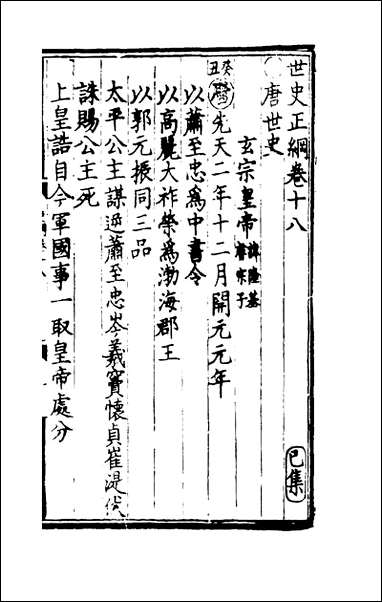 世史正綱卷十八
巳集
唐世史
玄宗皇帝 諱隆基睿宗子
癸丑 唐 先天二年十二月開元元年
以蕭至忠爲中書令
以高麗大祚榮爲渤海郡王
以郭元振同三品
太平公主謀逆蕭至忠岑羲竇懷貞崔湜伏
誅賜公主死
上皇誥自今軍國事一取皇帝處分